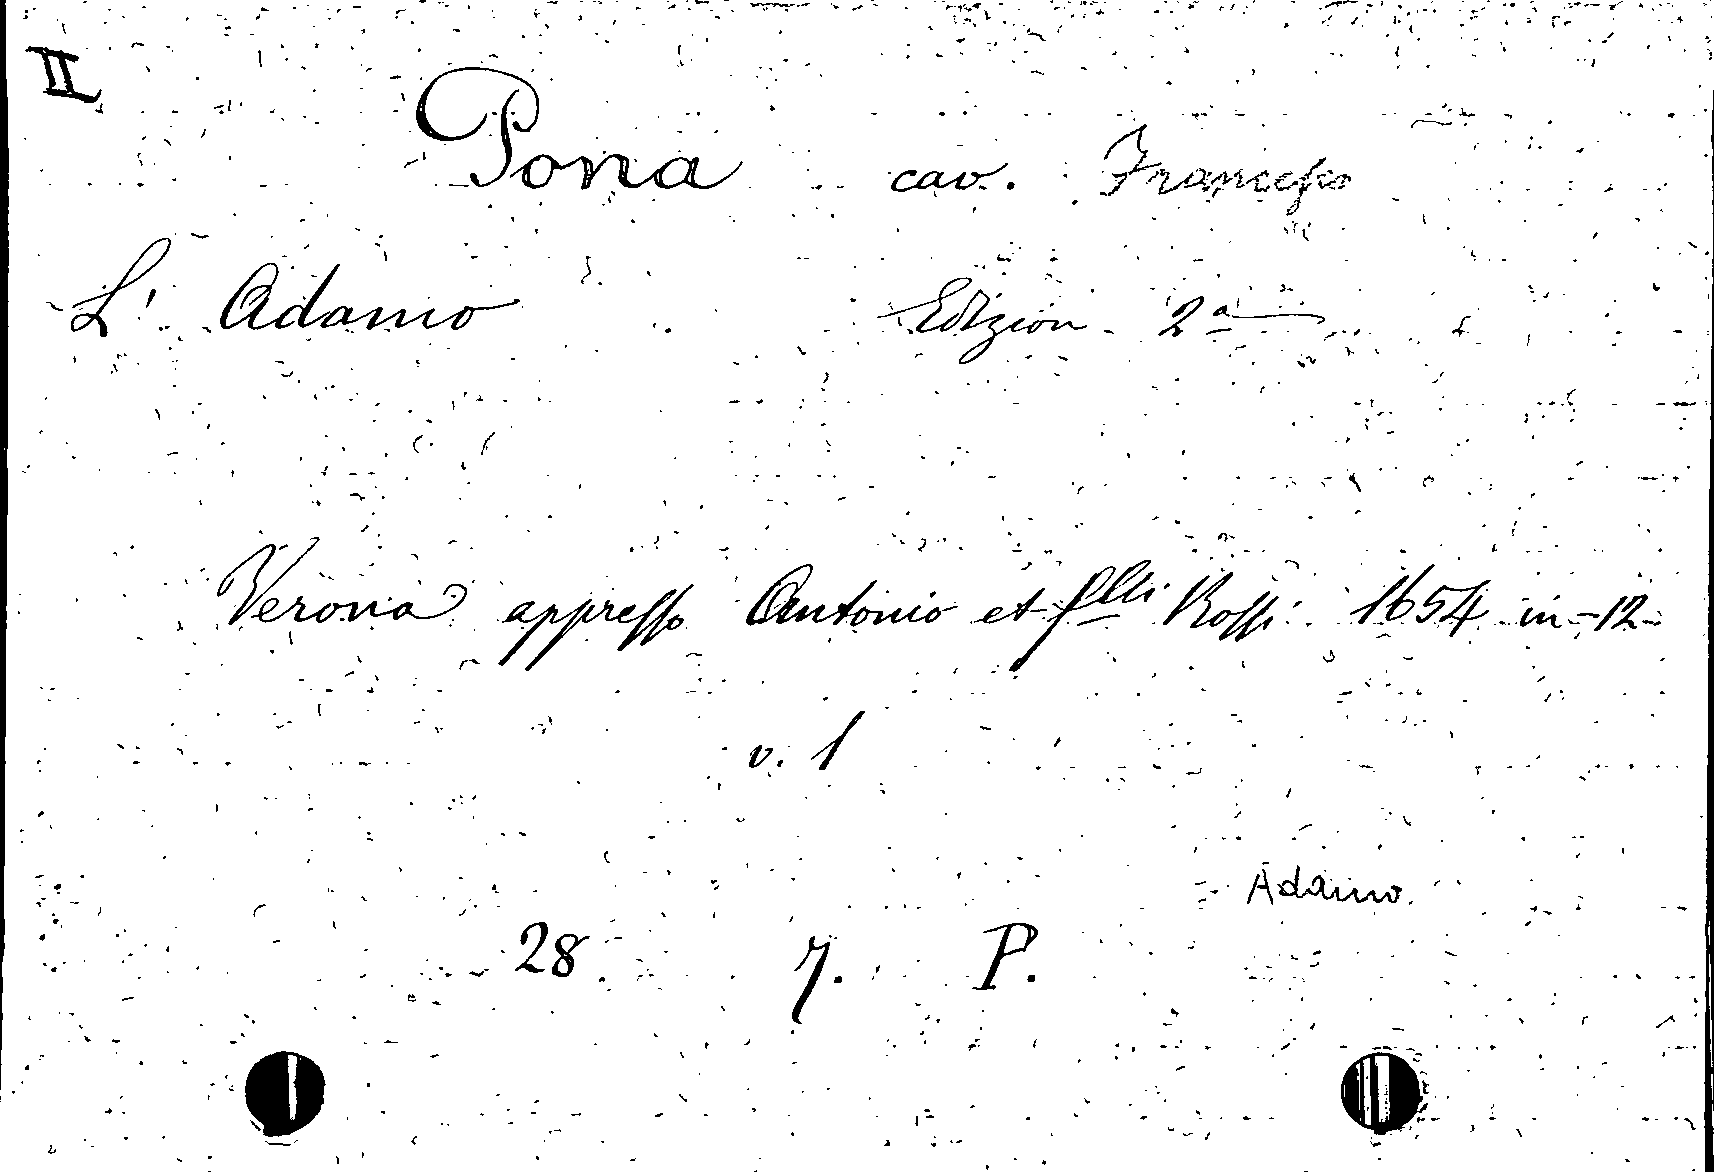 II
Pona cav. Francesco
L' Adamo Edizion 2a
Verona appresso Antonio et f.lli Rossi 1654 in-12
v. 1
Adamo
28 7. P.